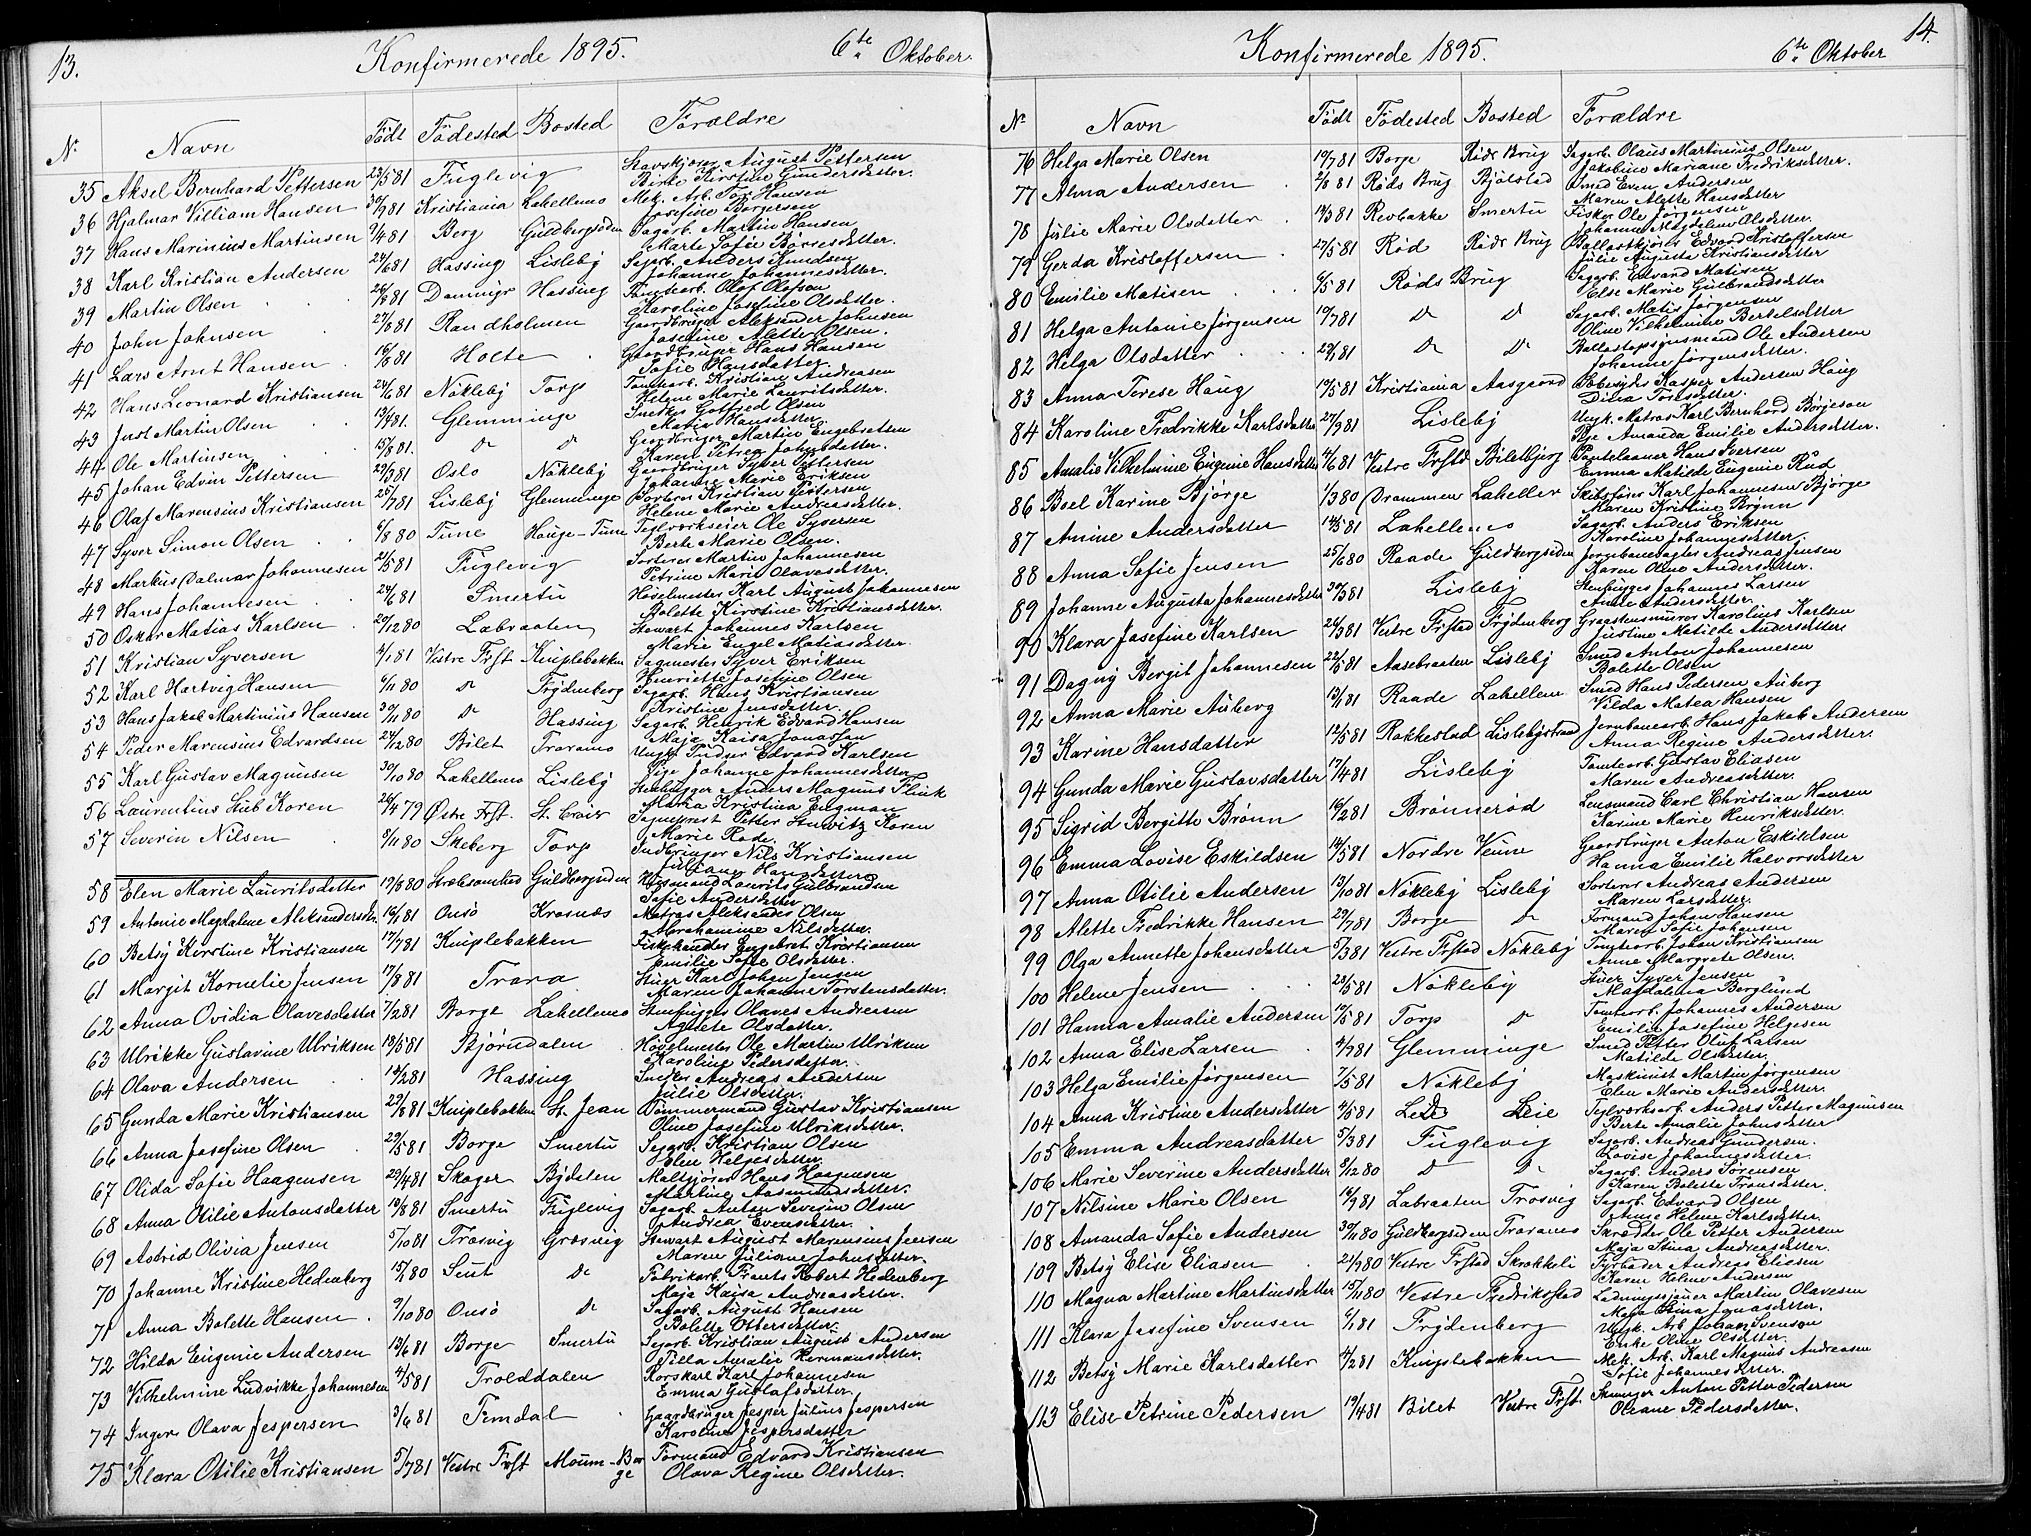 13.
Konfirmerede 1895.
6te Oktober.
Nr. Navn Født Fødested Bosted Forældre
35 Aksel Bernhard Pettersen 23/5 81 Fuglevig August Pettersen
Kirstine Gundersdatter.
36 Hjalmar Villiam Hansen 30/9 81 Kristiania Lahellemo Mek. Arb. Hansen
Josefine Børgersen
37 Hans Marinius Martinsen 9/4 81 Berg Guldbergsiden Sagarb. Martin Hansen
Marte Sofie
38 Karl Kristian Andersen 24/6 81 Hassing Lisleby Sagarb. Anders Knudsen
Johanne Johannesdatter.
39 Martin Olsen 26/8 81 Hassing Tomtearb. Olaf Olafsen
Karoline Josefine Olsdatter.
40 John Johnsen 27/8 81 Randholmen Gaardbruger Aleksander Johnsen
Josefine Alette Olsen.
41 Lars Arnt Hansen 16/8 81 Holte Gaardbruger Hans Hansen
Sofie Hansdatter.
42 Hans Leonard Kristiansen 24/6 81 Nøkleby Torp Tomtearb. Kristian Andreasen
Helene Marie Lauritsdatter.
43 Just Martin Olsen 13/9 81. Glemminge Snedker Gotfred Olsen
Hansdatter
44 Ole Martinsen 15/8 81. do do Gaardbruger Martin Engebretsen
Karen Petrea
45 Johan Edvin Pettersen 23/3 81 Oslo Nøkleby Gaardbruger Syver Pettersen
Johanne Marie Eriksen
46 Olaf Marensius Kristiansen 25/7 81 Lisleby Glemminge Kristian Pettersen
Helene Marie Andreasdatter.
47 Syver Simon Olsen 6/8 80 Tune Hauge-Tune Teglværkseier Ole Syversen
Berte Marie Olsen.
48 Markus Dalmar Johannesen 21/5 81 Fuglevig Sorterer Martin Johannesen
Petrine Marie Olavesdatter.
49 Hans Johannesen 24/6 81 Smertu Høvelmester Karl August Johannesen
Kirstine Kristiansdatter.
50 Oskar Matias Karlsen 29/12 80 Labraaten Stewart Johannes Karlsen
Marie Engel Matiasdatter.
51 Kristian Syversen 4/1 81 Vestre Frst Kniplebakken Sagmester Syver Eriksen
Henriette Josefine Olsen
52 Karl Hartvig Hansen 6/11 80 do Frydenberg Sagarb. Hans Kristiansen
Kristine Jensdatter.
53 Hans Jakob Martinius Hansen 30/11 80 do Hassing Sagarb. Henrik Edvard Hansen
Maja Kaisa Jonassen
54 Peder Marensius Edvardsen 24/12 80 Bilet Traramo Ungk. Edvard Karlsen
Pige Johanne Johannesdatter
55 Karl Gustav Magnusen 30/10 80 Lahellemo Lisleby Stenhugger Anders Magnus Flink
Maria Kristina Engman
56 Laurentius Stub Koren 26/4 79 Østre Frst. St. Croix Sogneprest Petter Koren
Marie Rode.
57 Severin Nilsen 8/11 80 Skeberg Torp Nils Kristiansen
Hansdatter
58 Elen Marie Lauritsdatter 19/8 80 Guldbergsiden Laurits Gulbrandsen
Sofie Andersdatter
59 Antonie Magdalene Aleksandersdn. 16/1 81 Onsø Krosnæs Matros Aleksander Olsen
Nilsdatter.
60 Betsy Kirstine Kristiansen 17/7 81 Kniplebakken Fiskehandler Engebret Kristiansen
Emilie Sofie Olsdatter.
61 Margit Kornelie Jensen 17/8 81 Trara Stuer Karl Johan Jensen
Maren Johanne Torstensdatter.
62 Anna Ovidia Olavesdatter 7/2 81 Borge Lahellemo Stenhugger Olaves Andreasen
Agnete Olsdatter.
63 Ulrikke Gustavine Ulriksen 18/5 81 Bjørndalen Høvelmester Ole Martin Ulriksen
Karoline Pedersdatter.
64 Olava Andersen 14/2 81 Hassing Snedker Andreas Andersen
Julie Olsdatter.
65 Gunda Marie Kristiansen 29/8 81 Kniplebakken St. Jean Tømmermand Gustav Kristiansen
Oline Josefine Ulriksdatter.
66 Anna Josefine Olsen 29/5 81 Borge Smertu Sagarb. Kristian Olsen
Elen Helgesdatter
67 Olida Sofie Haagensen 29/4 81 Skager Bydalen Maltgjører Hans Haagensen
Martine Aasmundsdatter.
68 Anna Otilie Antonsdatter 10/8 81 Smertu Fuglevig Sagarb. Anton Severin Olsen
Andrea Evensdatter.
69 Astrid Olivia Jensen 5/10 81 Trosvig Græsvig Stewart August Marensius Jensen
Maren Juliane Johnsdatter.
70 Johanne Kristine Hedenberg 15/2 80 Seut do Fabrikarb. Frants Robert Hedenberg
Maja Kaisa Andreasdatter.
71 Anna Bolette Hansen 9/10 80 Onsø do Sagarb. August Hansen
Bolette Ottersdatter.
72 Hilda Eugenie Andersen 13/6 81 Borge Smertu Sagarb. Kristian August Andersen
Tilla Amalie Hermansdatter.
73 Vilhelmine Ludvikke Johannesen 4/5 81 Trolddalen Korskarl Karl Johannesen
Emma Gustafsdatter.
74 Inger Olava Jespersen 3/6 81 Femdal Gaardbruger Jesper Julius Jespersen
Karoline Jespersdatter
75 Klara Otilie Kristiansen 5/7 81 Vestre Frst Moum-Borge Formand Edvard Kristiansen
Olava Regine Olsdatter.
14.
Konfirmerede 1895.
6te Oktober
Nr Navn Født Fødested Bosted Forældre
76 Helga Marie Olsen 19/7 81 Borge Røds Brug Sagarb. Olaus Martinius Olsen
Jakobine Mariane Fredriksdatter.
77 Alma Andersen 2/8 81 Røds Brug Bjølstad Smed Even Andersen
Maren Alette Hansdatter
78 Julie Marie Olsdatter 14/3 81 Revbakke Smertu Fisker Ole Jørgensen
Johanne Magdalene Olsdatter.
79 Gerda Kristoffersen 27/5 81 Rød Røds Brug Ballastkjører Edvard Kristoffersen
Julie Augusta Kristiansdatter
80 Emilie Matisen 6/5 81 Røds Brug Sagarb. Edvard Matisen
Else Marie Gulbrandsdatter
81 Helga Antonie Jørgensen 10/7 81 do do Sagarb. Matis Jørgensen
Oline Vilhelmine Bertelsdatter
82 Helga Olsdatter 29/1 81 do do Ole Andersen
Johanne Jørgensdatter.
83 Anna Terese Haug 19/5 81 Kristiania Aasgaard Kasper Andersen Haug
Dina
84 Karoline Fredrikke Karlsdatter 27/9 81 Lisleby Ungk. Matros Karl Bernhard Børjeson
Pige Amanda Emilie Andersdatter.
85 Amalie Vilhelmine Eugenie Hansdatter 4/6 81 Vestre Frstd Biletbjerg Pantelaaner Hans Iversen
Emma Matilde Eugenie Rud
86 Bsel Karine Bjørge 1/3 80 Drammen Lahellen Skibsfører Karl Johannesen Bjørge
Maren Kristine Brynn
87 Amine Andersdatter 14/5 81 Lahellemo Sagarb. Anders Eriksen
Karoline Johannesdatter.
88 Anna Sofie Jensen 25/6 80 Raade Guldbergsiden Andreas Jensen
Karen Oline Andersdatter.
89 Johanne Augusta Johannesdatter 30/3 81 Lisleby Stenhugger Johannes Larsen
Anne Andersdatter.
90 Klara Josefine Karlsen 24/3 81 Vestre Frstad Frydenberg Graastensmurer Karolius Karlsen
Justine Matilde Andersdatter.
91 Dagny Bergit Johannesen 22/5 81 Aasebraaten Lisleby Smed Anton Johannesen
Bolette Olsen
92 Anna Marie Auberg 13/1 81 Raade Lahellen Smed Hans Pedersen Auberg
Vilda Matea Hansen
93 Karine Hansdatter 12/5 81 Rakkestad Lislebystrand Jernbanearb. Hans Jakob Andersen
Anna Regine Andersdatter.
94 Gunda Marie Gustavsdatter 17/4 81 Lisleby Tomtearb. Gustav Eliasen
Maren Andreasdatter.
95 Sigrid Bergitte Brønn 16/2 81 Brønnerød Lensmand Carl Christian Hansen
Karine Marie Henriksdatter.
96 Emma Lovise Eskildsen 14/5 81 Nordre Veune Gaardbruger Anton Eskildsen
Hanna Emilie Halvorsdatter
97 Anna Otilie Andersen 13/10 81 Nøkleby Lisleby Sorterer Andreas Andersen
Maren Larsdatter.
98 Alette Fredrikke Hansen 29/7 81 Borge do Formand Johan Hansen
Maren Sofie Johansen
99 Olga Annette Johansdatter 5/3 81 Vestre Frstad Nøkleby Tomtearb. Johan Kristiansen
Anne Margrete Olsen.
100 Helene Jensen 28/5 81 Nøkleby Stuer Syver Jensen
Magdalena Berglund
101 Hanna Amalie Andersen 19/5 81 Torp do Tomtearb. Johannes Andersen
Emilie Josefine Helgesen
102 Anna Elise Larsen 4/9 81 Glemminge Smed Petter Oluf Larsen
Matilde Olsdatter.
103 Helga Emilie Jørgensen 7/5 81 Nøkleby Maskinist Martin Jørgensen
Elen Marie Andersdatter.
104 Anna Kristine Andersdatter 4/5 81 Leie Teglværksarb Anders Petter Magnusen
Berte Amalie Johnsdatter
105 Emma Andreasdatter 5/3 81 Fuglevig Sagarb. Andreas Gundersen.
Lovise Johannesdatter.
106 Marie Severine Andersdatter 8/12 80 do do Sagarb. Anders Sørensen
Karen Bolette Transdatter.
107 Nilsine Marie Olsen 14/9 81 Labraaten Trosvig Sagarb. Edvard Olsen
Anne Helene Karlsdatter.
108 Amanda Sofie Andersen 30/11 80 Guldbergsiden Traramo Skrædder Ole Petter Andersen
Maja Stina Andreasdatter.
109 Betsy Elise Eliasen 21/9 80 Vestre Frstad Skrokkeli Fyrbøder Andreas Eliasen
Karen Helene Andersen
110 Magna Martine Martinsdatter 15/11 80 Vestre Fredrikstad Martin Olavesen
Maja Stina Jonasdatter.
111 Klara Josefine Svensen 6/1 81 Frydenberg Ungk. Arb Johan Svenson
Enke Oline Olsdatter.
112 Betsy Marie Karlsdatter 4/2 81 Kniplebakken Mek. Arb. Karl Magnus Andreasen
Sofie Johannesdatter.
113 Elise Petrine Pedersen 19/4 81 Bilet Vestre Frst. Anton Petter Pedersen
Oleane Pedersdatter.